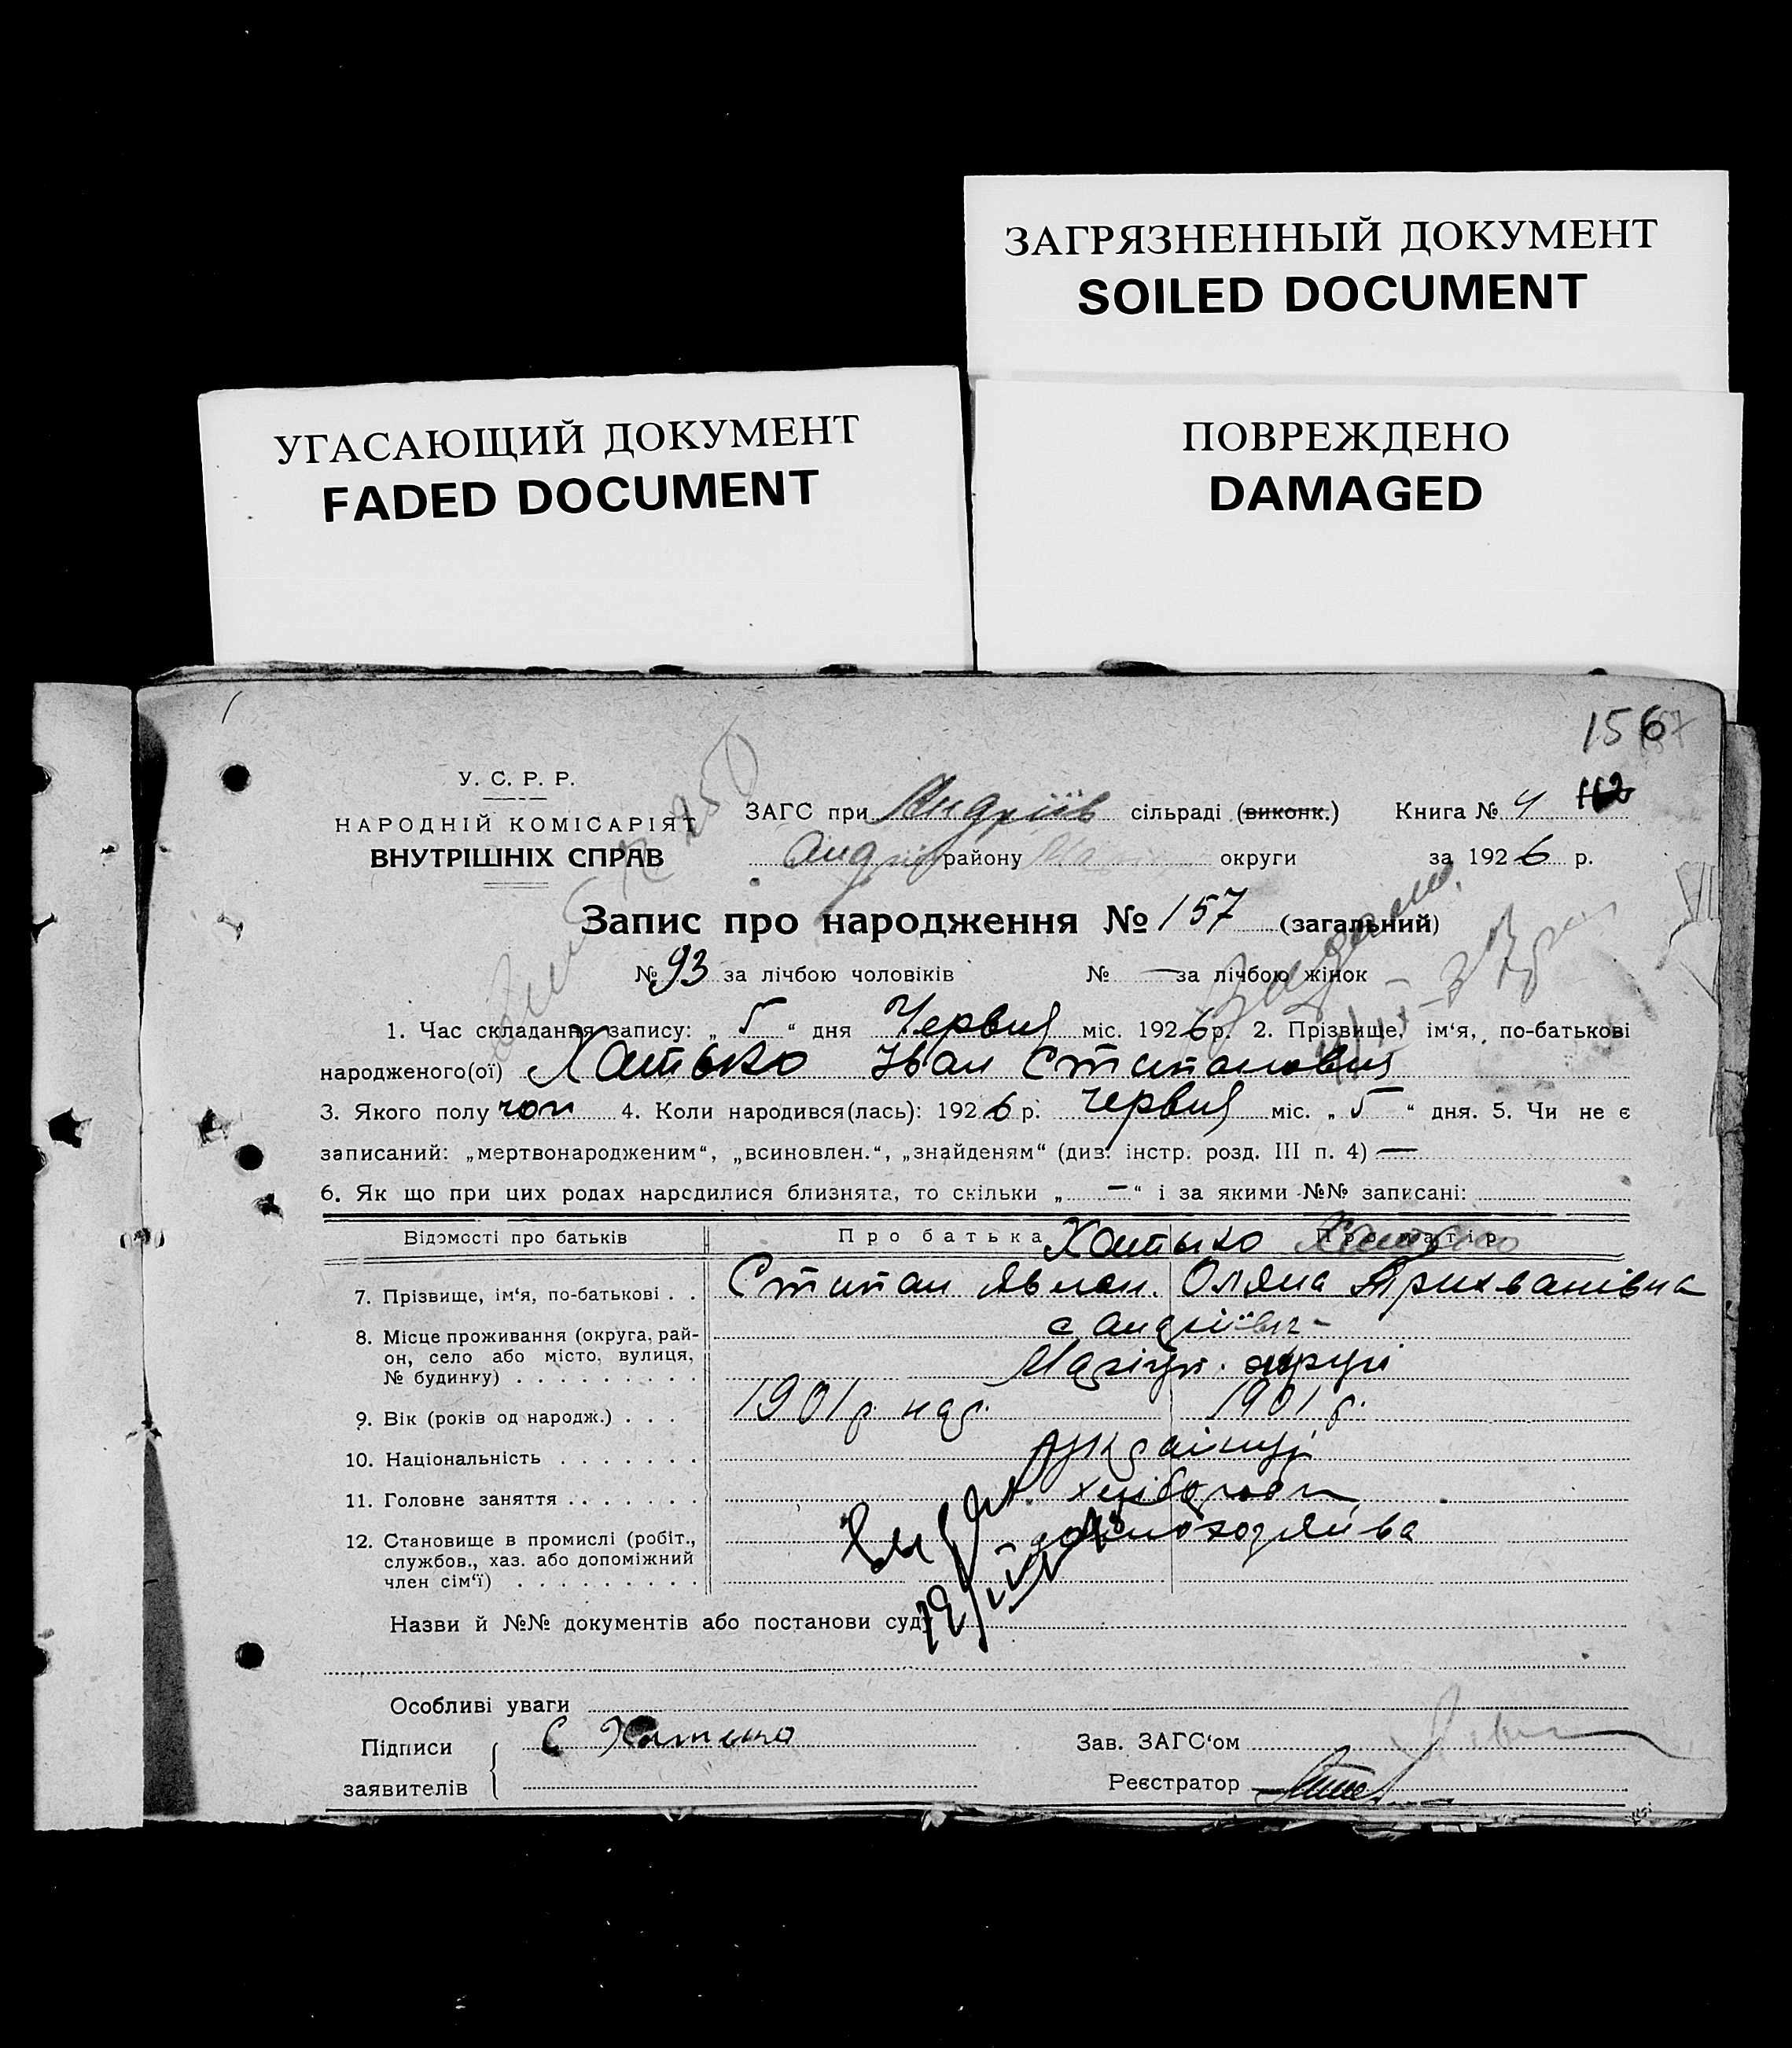 ЗАГРЯЗНЕННЫЙ ДОКУМЕНТ
SOILED DOCUMENT
УГАСАЮЩИЙ ДОКУМЕНТ
FADED DOCUMENT
ПОВРЕЖДЕНО
DAMAGED
156
У. С. Р. Р.
НАРОДНІЙ КОМІСАРІЯТ
ВНУТРІШНІХ СПРАВ
ЗАГС при Андріїв сільраді (виконк.) Книга № 4 112
Андріїв району округи за 1926 р.
Запис про народження № 157 (загальний)
№ 93 за лічбою чоловіків № — за лічбою жінок
1. Час складання запису: „ 5 “ дня Червня міс. 1926 р. 2. Прізвище, ім‘я, по-батькові
народженого(ої) Хатько Іван Стипанович
3. Якого полу чол 4. Коли народився(лась): 1926 р. червня міс. „ 5 “ дня. 5. Чи не є
записаний: „мертвонародженим“, „всиновлен.“, „знайденям“ (див. інстр. розд. III п. 4) —
6. Як що при цих родах народилися близнята, то скільки „ — “ і за якими №№ записані:
Відомості про батьків Про батька Хатько Про матір
7. Прізвище, ім‘я, по-батькові . . Стипан Оляна
8. Місце проживання (округа, рай-
он, село або місто, вулиця,
№ будинку) . . . . . . . . .
с Андріївці
Маріуп. округи
9. Вік (років од народж.) . . . 1901 р. нар. 1901 р.
10. Національність . . . . . . . українці
11. Головне заняття . . . . . . хлібороби
12. Становище в промислі (робіт.,
службов., хаз. або допоміжний
член сім‘ї) . . . . . . . . .
Назви й №№ документів або постанови суду
Особливі уваги
Підписи
заявителів
С Хатько
Зав. ЗАГС‘ом
Реєстратор